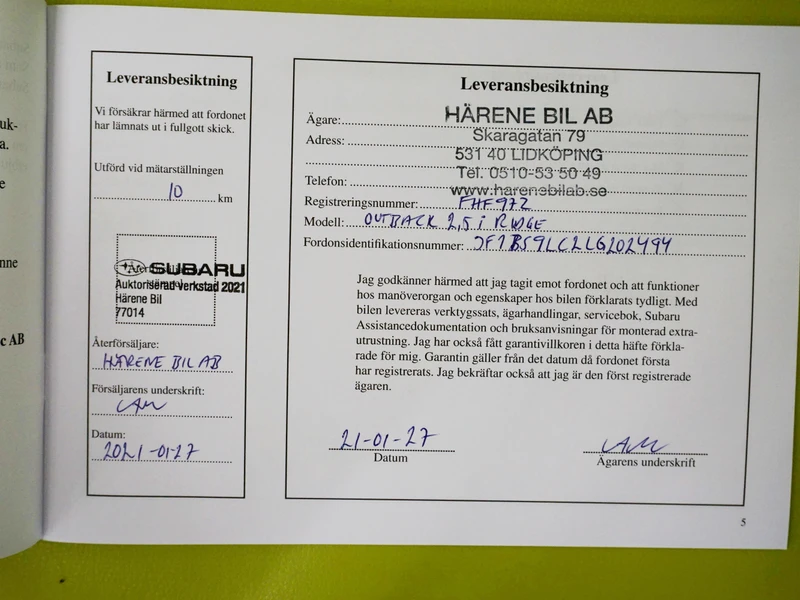 uk-
a.
e
nne
c AB
Leveransbesiktning
Vi försäkrar härmed att fordonet
har lämnats ut i fullgott skick.
Utförd vid mätarställningen
10 km
SUBARU
Auktoriserad verkstad 2021
Härene Bil
77014
Återförsäljare:
HÄRENE BIL AB
Försäljarens underskrift:
Datum:
2021-01-27
Leveransbesiktning
Ägare: HÄRENE BIL AB
Adress: Skaragatan 79
531 40 LIDKÖPING
Telefon: Tel. 0510-53 50 49
www.harenebilab.se
Registreringsnummer: FHF97Z
Modell: OUTBACK 2,5i RIDGE
Fordonsidentifikationsnummer: JF1BS9LC2LG202494
Jag godkänner härmed att jag tagit emot fordonet och att funktioner
hos manöverorgan och egenskaper hos bilen förklarats tydligt. Med
bilen levereras verktygssats, ägarhandlingar, servicebok, Subaru
Assistancedokumentation och bruksanvisningar för monterad extra-
utrustning. Jag har också fått garantivillkoren i detta häfte förkla-
rade för mig. Garantin gäller från det datum då fordonet första
har registrerats. Jag bekräftar också att jag är den först registrerade
ägaren.
21-01-27
Datum
Ägarens underskrift
5